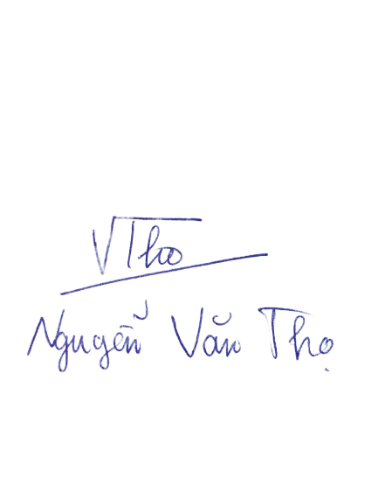 VTho
Nguyễn Văn Thọ